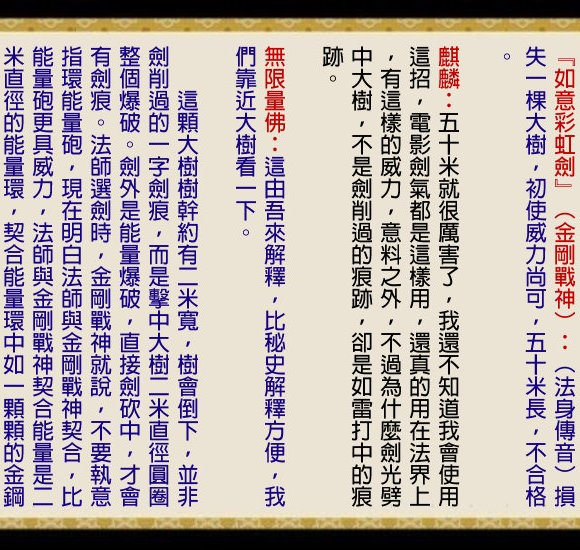 『如意彩虹劍』（金剛戰神）：（法身傳音）損
失一棵大樹，初使威力尚可，五十米長，不合格
。
麒麟：五十米就很厲害了，我還不知道我會使用
這招，電影劍氣都是這樣用，還真的用在法界上
，有這樣的威力，意料之外，不過為什麼劍光劈
中大樹，不是劍削過的痕跡，卻是如雷打中的痕
跡。
無限量佛：這由吾來解釋，比秘史解釋方便，我
們靠近大樹看一下。
這顆大樹樹幹約有二米寬，樹會倒下，並非
劍削過的一字劍痕，而是擊中大樹二米直徑圓圈
整個爆破。劍外是能量爆破，直接劍砍中，才會
有劍痕。法師選劍時，金剛戰神就說，不要執意
指環能量砲，現在明白法師與金剛戰神契合，比
能量砲更具威力，法師與金剛戰神契合能量是二
米直徑的能量環，契合能量環中如一顆顆的金鋼